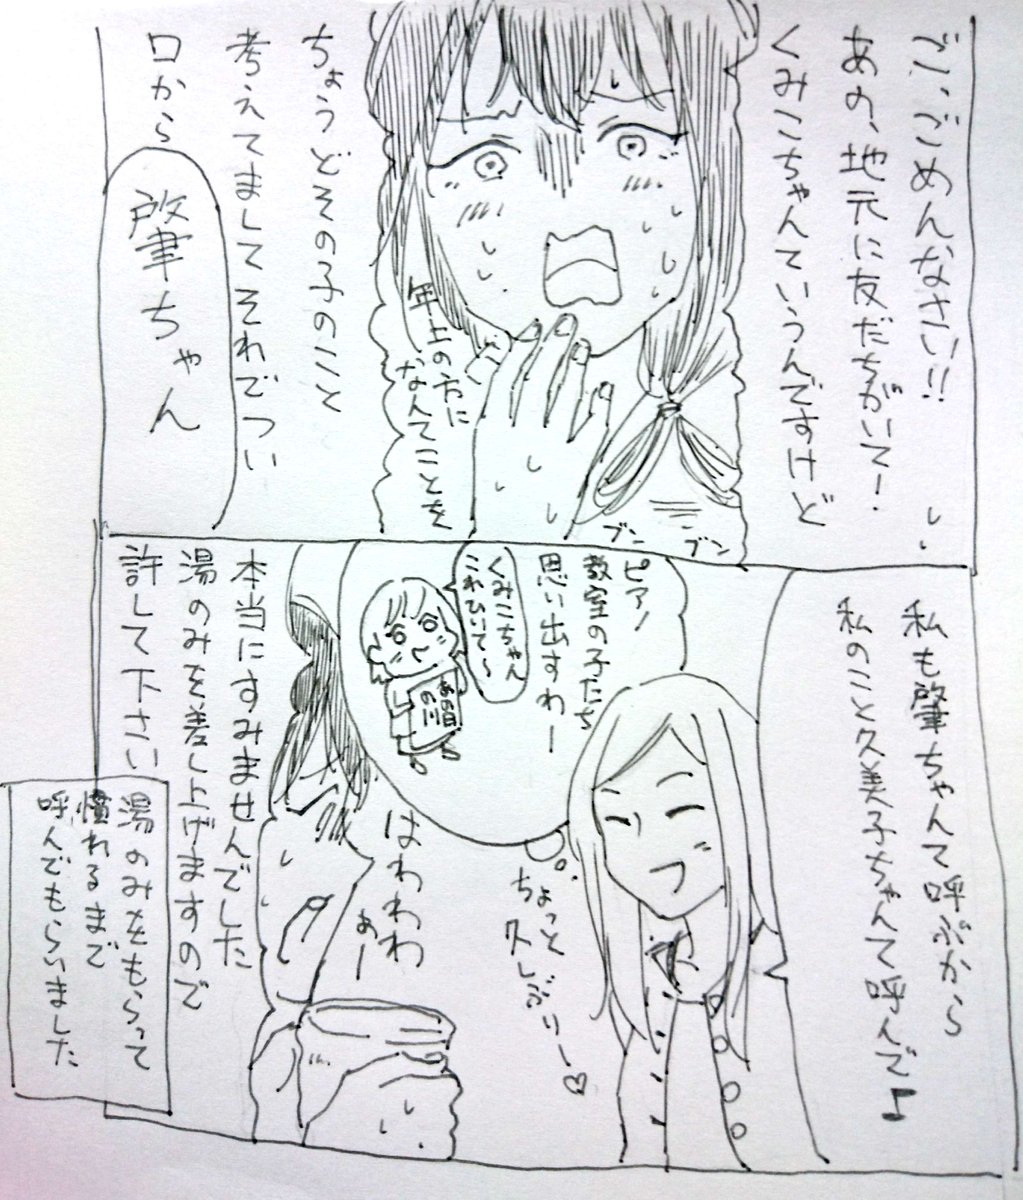 ご、ごめんなさい!!
あの、地元に友だちがいて!
くみこちゃんていうんですけど
ブン
ブン
年上の方に
なんてことを
ちょうどその子のこと
考えてましてそれでつい
口から
肇ちゃん
私も肇ちゃんて呼ぶから
私のこと久美子ちゃんて呼んで♪
ピアノ
教室の子たち
思い出すわー
くみこちゃん
これひいて〜
ちょっと
久しぶりー♡
はわわわ
ぁー
本当にすみませんでした
湯のみを差し上げますので
許して下さい
湯のみをもらって
慣れるまで
呼んでもらいました